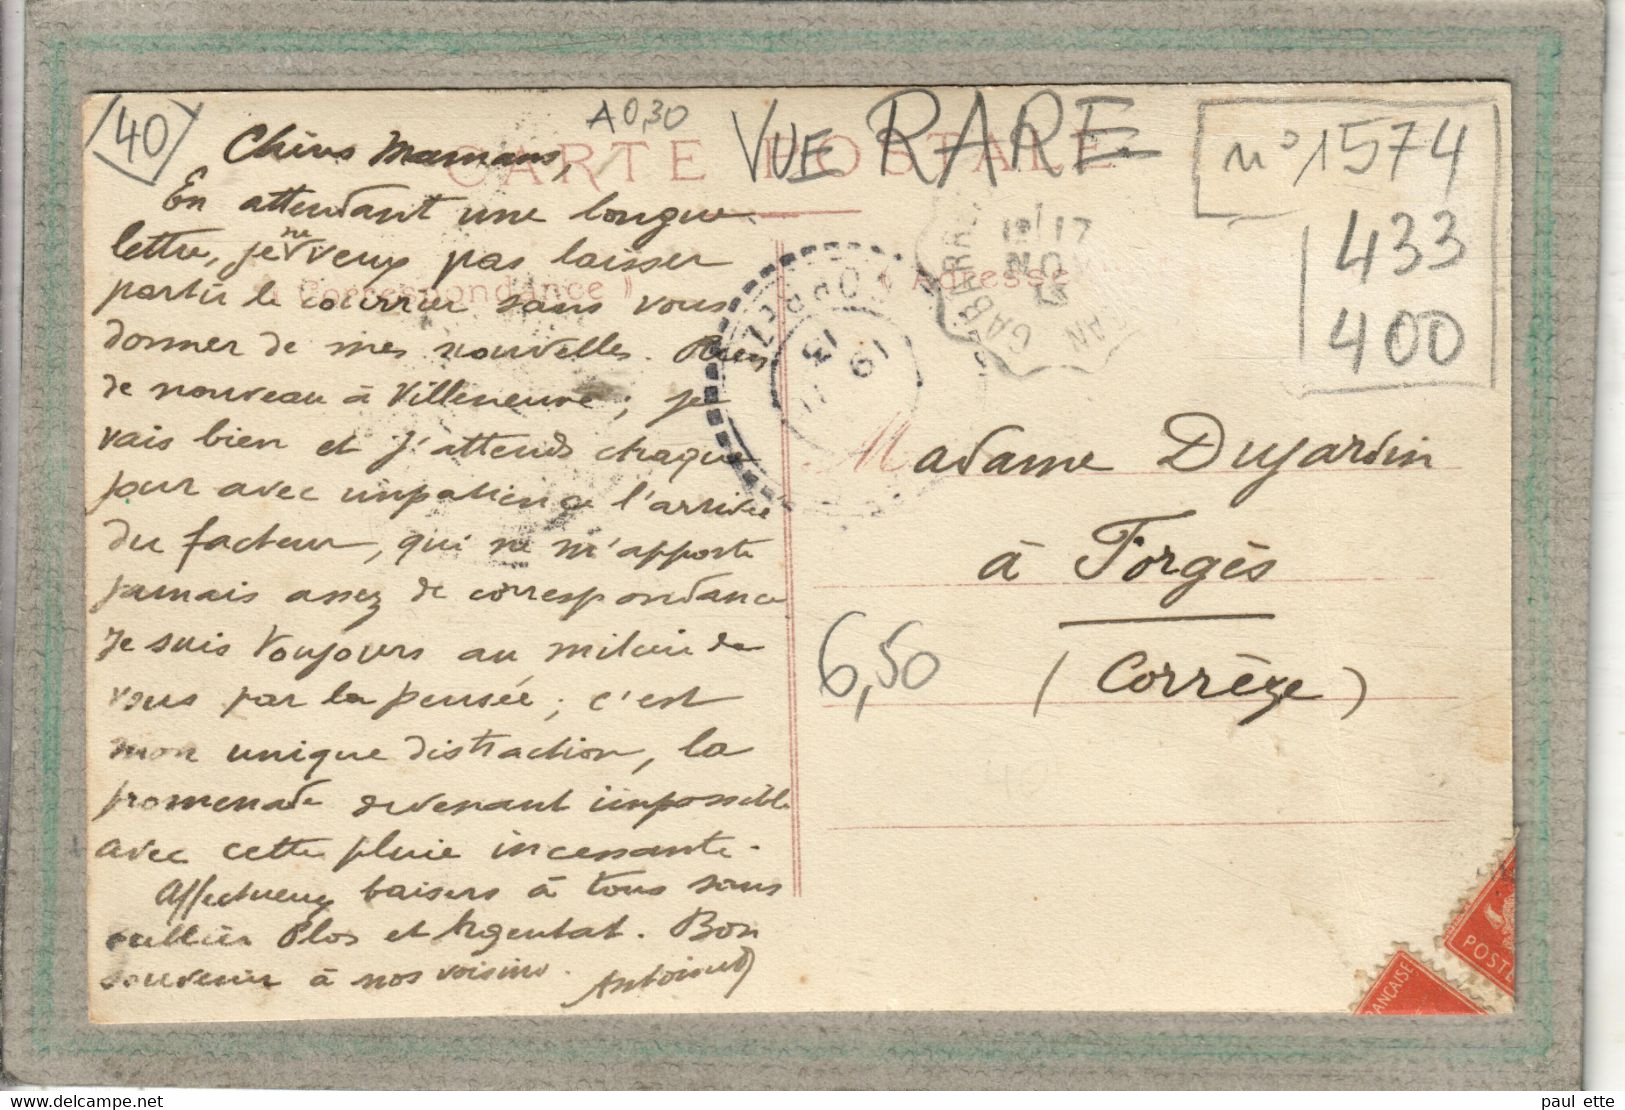 40
A 0,30
VUE RARE
n° 1574
433
400
CARTE POSTALE
Correspondance
Adresse
Chères Mamans,
En attendant une longue
lettre, je ne veux pas laisser
partir le courrier sans vous
donner de mes nouvelles. Rien
de nouveau à Villeneuve ; je
vais bien et j'attends chaque
jour avec impatience l'arrivée
du facteur, qui ne m'apporte
jamais assez de correspondance
Je suis toujours au milieu de
vous par la pensée ; c'est
mon unique distraction, la
promenade devenant impossible
avec cette pluie incessante.
Affectueux baisers à tous sans
oublier Plos et Argentat. Bon
souvenir à nos voisins.
Madame Dujardin
à Forgès
(Corrèze)
6,50
GABARRET
17
13
19
POSTE
FRANÇAISE
paul ette